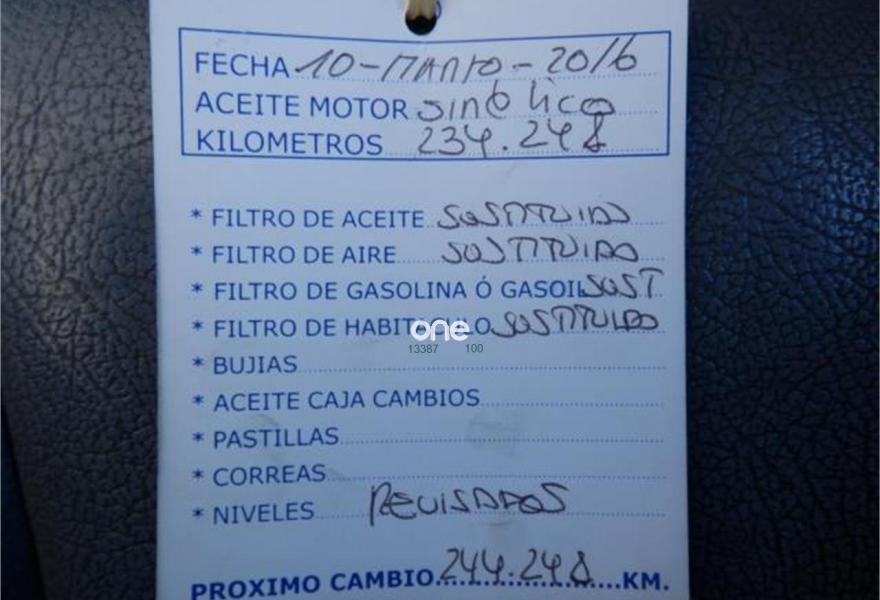 FECHA 10-MARZO-2016
ACEITE MOTOR sintético
KILOMETROS 234.248
* FILTRO DE ACEITE SUSTITUIDO
* FILTRO DE AIRE SUSTITUIDO
* FILTRO DE GASOLINA Ó GASOIL SUST
* FILTRO DE HABITÁCULO SUSTITUIDO
one
13387 100
* BUJIAS
* ACEITE CAJA CAMBIOS
* PASTILLAS
* CORREAS
* NIVELES REVISADOS
PROXIMO CAMBIO 244.248 KM.